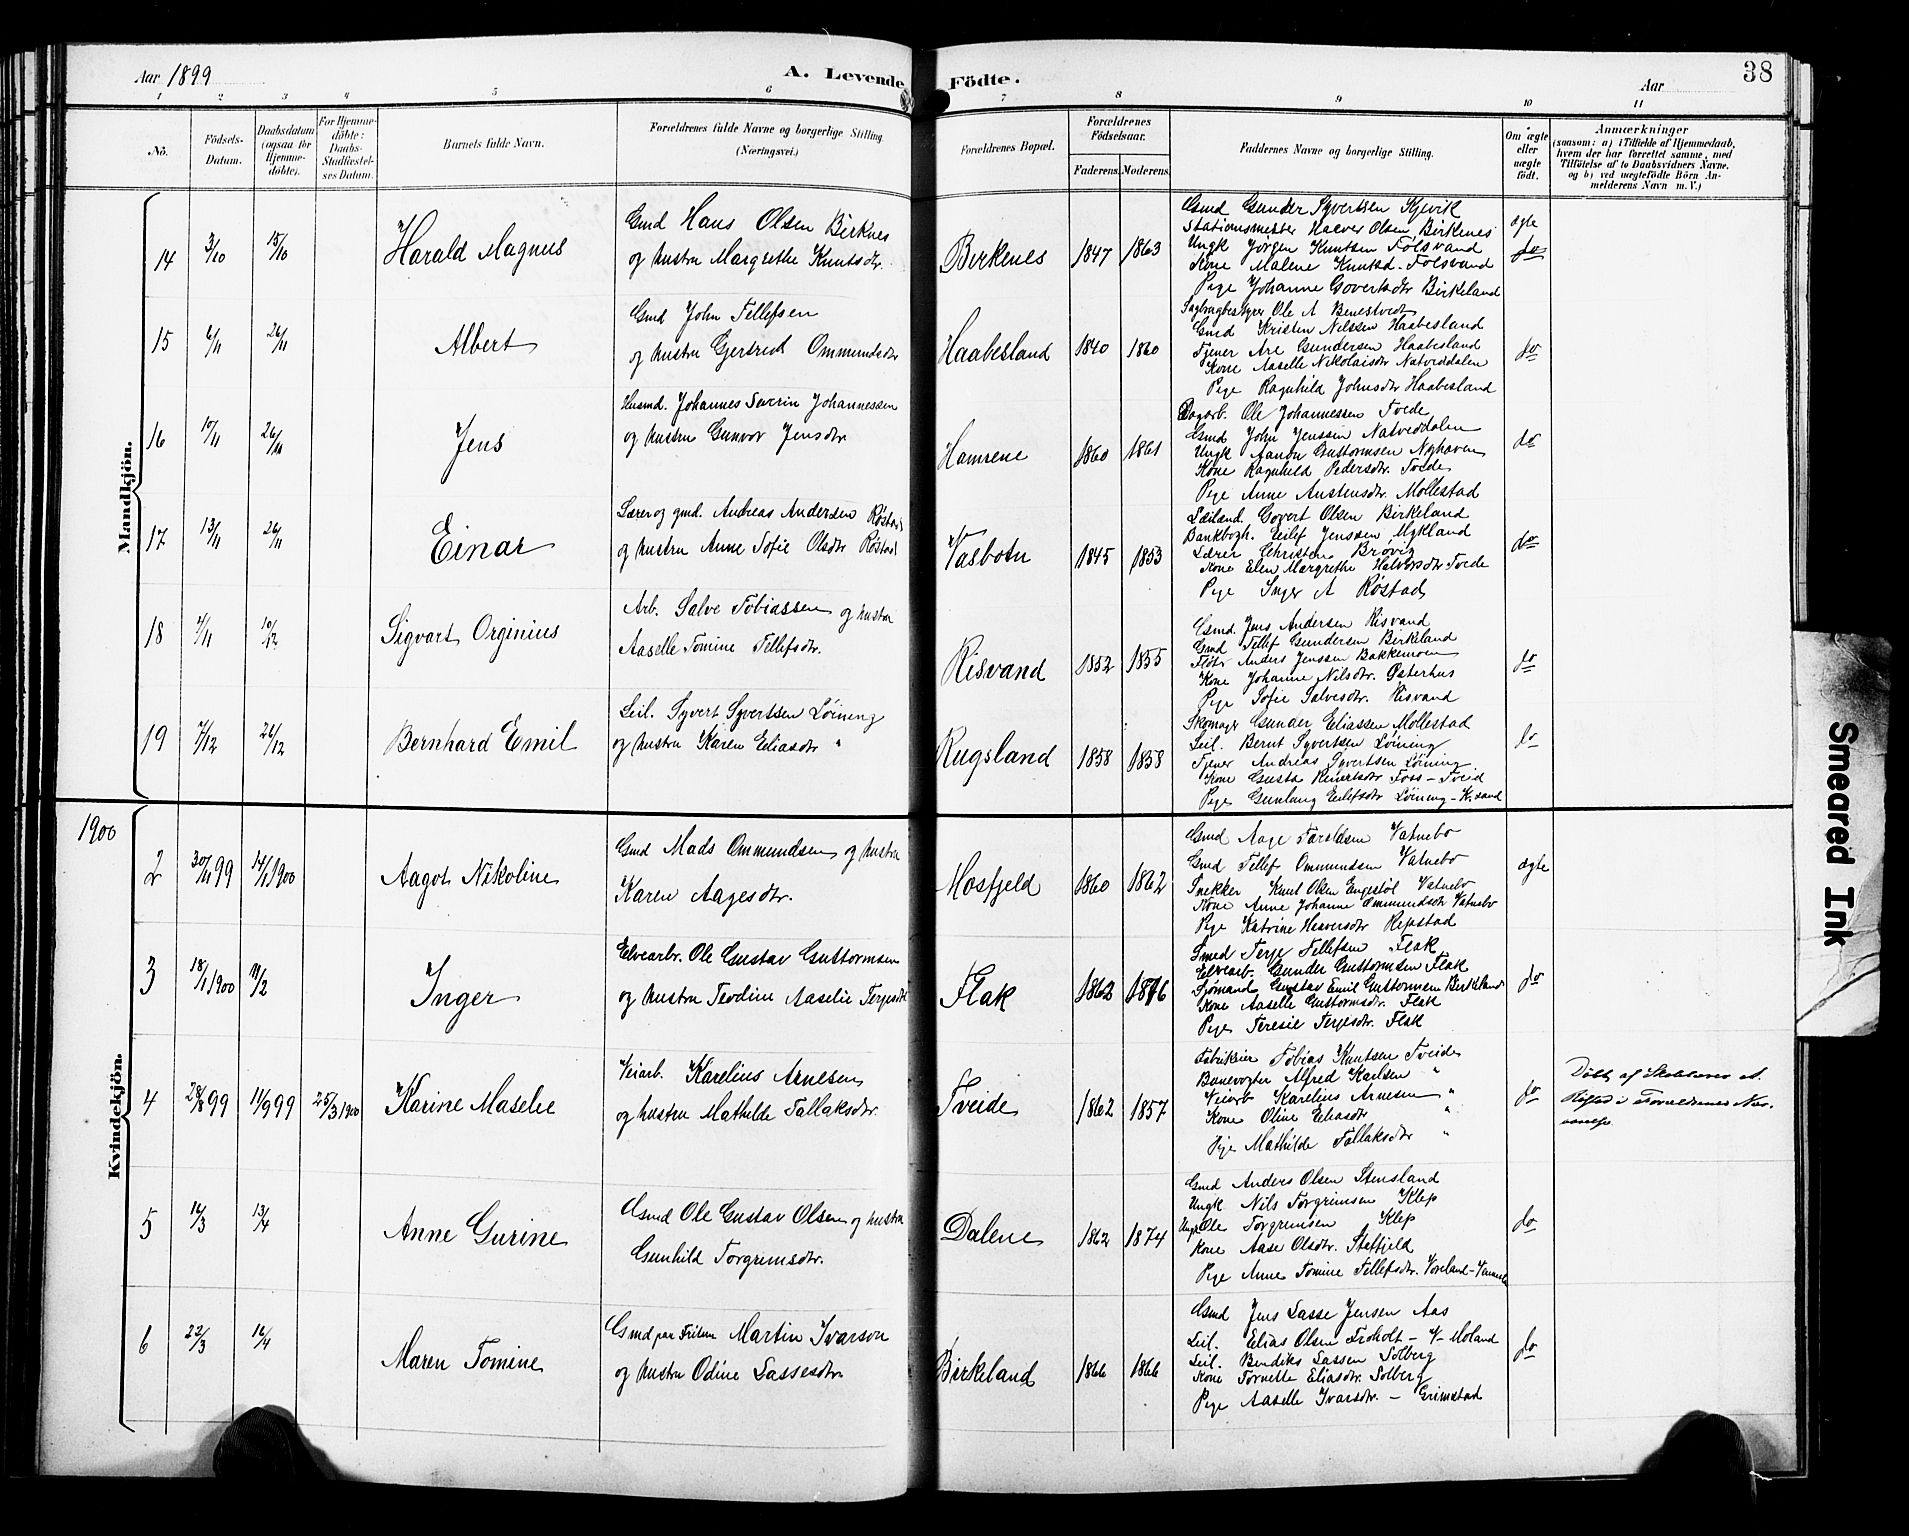 Aar 1899
A. Levende Födte.
Aar
38
1 2 3 4 5 6 7 8 9 10 11
Nö.
Födsels-Datum.
Daabsdatum (ogsaa for Hjemme-döbte).
For Hjemme-döbte: Daabs-Stadfæstel-ses Datum.
Barnets fulde Navn.
Forældrenes fulde Navne og borgerlige Stilling. (Næringsvei.)
Forældrenes Bopæl.
Forældrenes Födselsaar.
Faderens. Moderens.
Faddernes Navne og borgerlige Stilling.
Om ægte eller uægte födt.
Anmærkninger
(saasom: a) i Tilfælde af Hjemmedaab,
hvem der har forrettet samme, med
Tilföielse af to Daabsvidners Navne.
og b) ved uægtefödte Börn An-
melderens Navn m. V.)
Mandkjön.
14 3/10 15/10
Harald Magnus
Gmd Hans Olsen Birknes
og hustru Margrethe Knutsdtr.
Birkenes 1847 1863
Gmd Gunder Syvertsen Kjevik
Stationsmester Halvor Olsen, Birkenes
Ungk Jörgen Knutsen Folsvand
Kone Malene Knutsd. Folsvand
Pige Johanne Govertsdtr Birkeland
ægte
do
15 6/11 26/11
Albert
Gmd John Tellefsen
og hustru Gjertrud Ommundsdtr
Haabesland 1840 1860
Ole A Benestvedt
Gmd Kristen Nilssen Haabesland
Tjener Are Gundersen Haabesland
Kone Aaselle Nikolaisdtr Natveddalen
Pige Ragnhild Johnsdtr Haabesland
do
16 10/11 26/11
Jens
Husmd. Johannes Severin Johannessen
og hustru Gunvor Jensdtr.
Hamrene 1860 1861
Dagarb. Ole Johannessen Tvede
Gmd John Jenssen Natveddalen
Ungk Aanon Guttormsen Nyhaven
Kone Ragnhild Pedersdtr. Tvede
Pige Anne Austensdtr. Mollestad
do
17 13/11 26/11
Einar
Lærer og gmd. Andreas Andersen Røstad
og hustru Anne Sofie Olsdtr Røstad
Vasbotn 1845 1853
Govert Olsen Birkeland
Bankbogh. Eilef Jenssen Mykland
Lærer Christen Brøvig
Kone Elen Margrethe Halvorsdtr Tvede
Pige Inger A Røstad
do
18 4/11 10/12
Sigvart Orginius
Arb. Salve Tobiassen og hustru
Aaselle Tomine Tellefsdtr.
Risvand 1852 1855
Gmd. Jens Andersen Risvand
Gmd Tellef Gundersen Birkeland
Fløtr Anders Jenssen Bakkemoen
Kone Johanne Nilsdtr. Østerhus
Pige Sofie Salvesdtr. Risvand
do
19 7/12 26/12
Bernhard Emil
Leil. Syvert Syvertsen Löining
og hustru Karen Eliasdtr "
Rugsland 1858 1858
Skomager Gunder Eliassen Mollestad
Leil. Bernt Syvertsen Löining
Tjener Andreas Syvertsen Löining
Kone Gusta Reiersdtr Foss - Tveid
Pige Gunlaug Eilefsdtr Löining - K.sand
do
1900
Kvindekjön.
2 30/11 99 14/1 1900
Aagot Nikoline
Gmd Mads Ommundsen og hustru
Karen Aagesdtr.
Mosfjeld 1860 1862
Gmd Aage Taraldsen Vatnebo
Gmd Tellef Ommundsen Vatnebo
Snekker Knut Olsen Engestöl Vatnebo
Kone Anne Johanne Ommundsdtr Vatnebo
Pige Katrine Heaversdtr Repstad
ægte
3 18/1 1900 11/2
Inger
Elvearbr. Ole Gustav Guttormsen
og hustru Teodine Aaselie Terjesdtr
Flak 1862 1876
Smed Terje Tellefsen Flak
Elvearb. Gunder Guttormsen Flak
Sjømand Gustav Emil Guttormsen Birkeland
Kone Aaselle Guttormsdtr. Flak
Pige Teresie Terjesdtr. Flak
do
4 28/8 99 11/9 99 25/3 1900
Karine Maselie
Veiarb. Karelius Arnesen
og hustru Mathilde Tallaksdtr.
Tveide 1862 1857
Fabrikeier Tobias Knutsen Tveide
Banevogter Alfred Karlsen "
Veiarb Karelius Arnesen "
Kone Oline Eliasdtr "
Pige Mathilde Tallaksdtr "
do
Döbt af A.
i Forældrenes Nær-
værelse.
5 16/3 13/4
Anne Gurine
Gmd Ole Gustav Olsen og hustru
Gunhild Torgrimsdtr.
Dalene 1862 1874
Gmd Anders Olsen Stensland
Ungk Nils Torgrimsen Klep
Ungk Ole Torgrimsen Klep
Kone Aase Olsdtr. Stetfjeld
Pige Anne Tomine Tellefsdtr. Voreland - Vennesla
do
6 22/3 16/4
Maren Tomine
Gmd paa Martin Ivarson
og hustru Odine Lassesdtr
Birkeland 1866 1866
Gmd Jens Lasse Jensen Aas
Leil. Elias Olsen Froholt - V-Moland
Leil. Bendiks Lassen Solberg
Kone Tornette Eliasdtr. Solberg
Pige Aaselle Ivarsdtr. - Grimstad
do
Smeared Ink